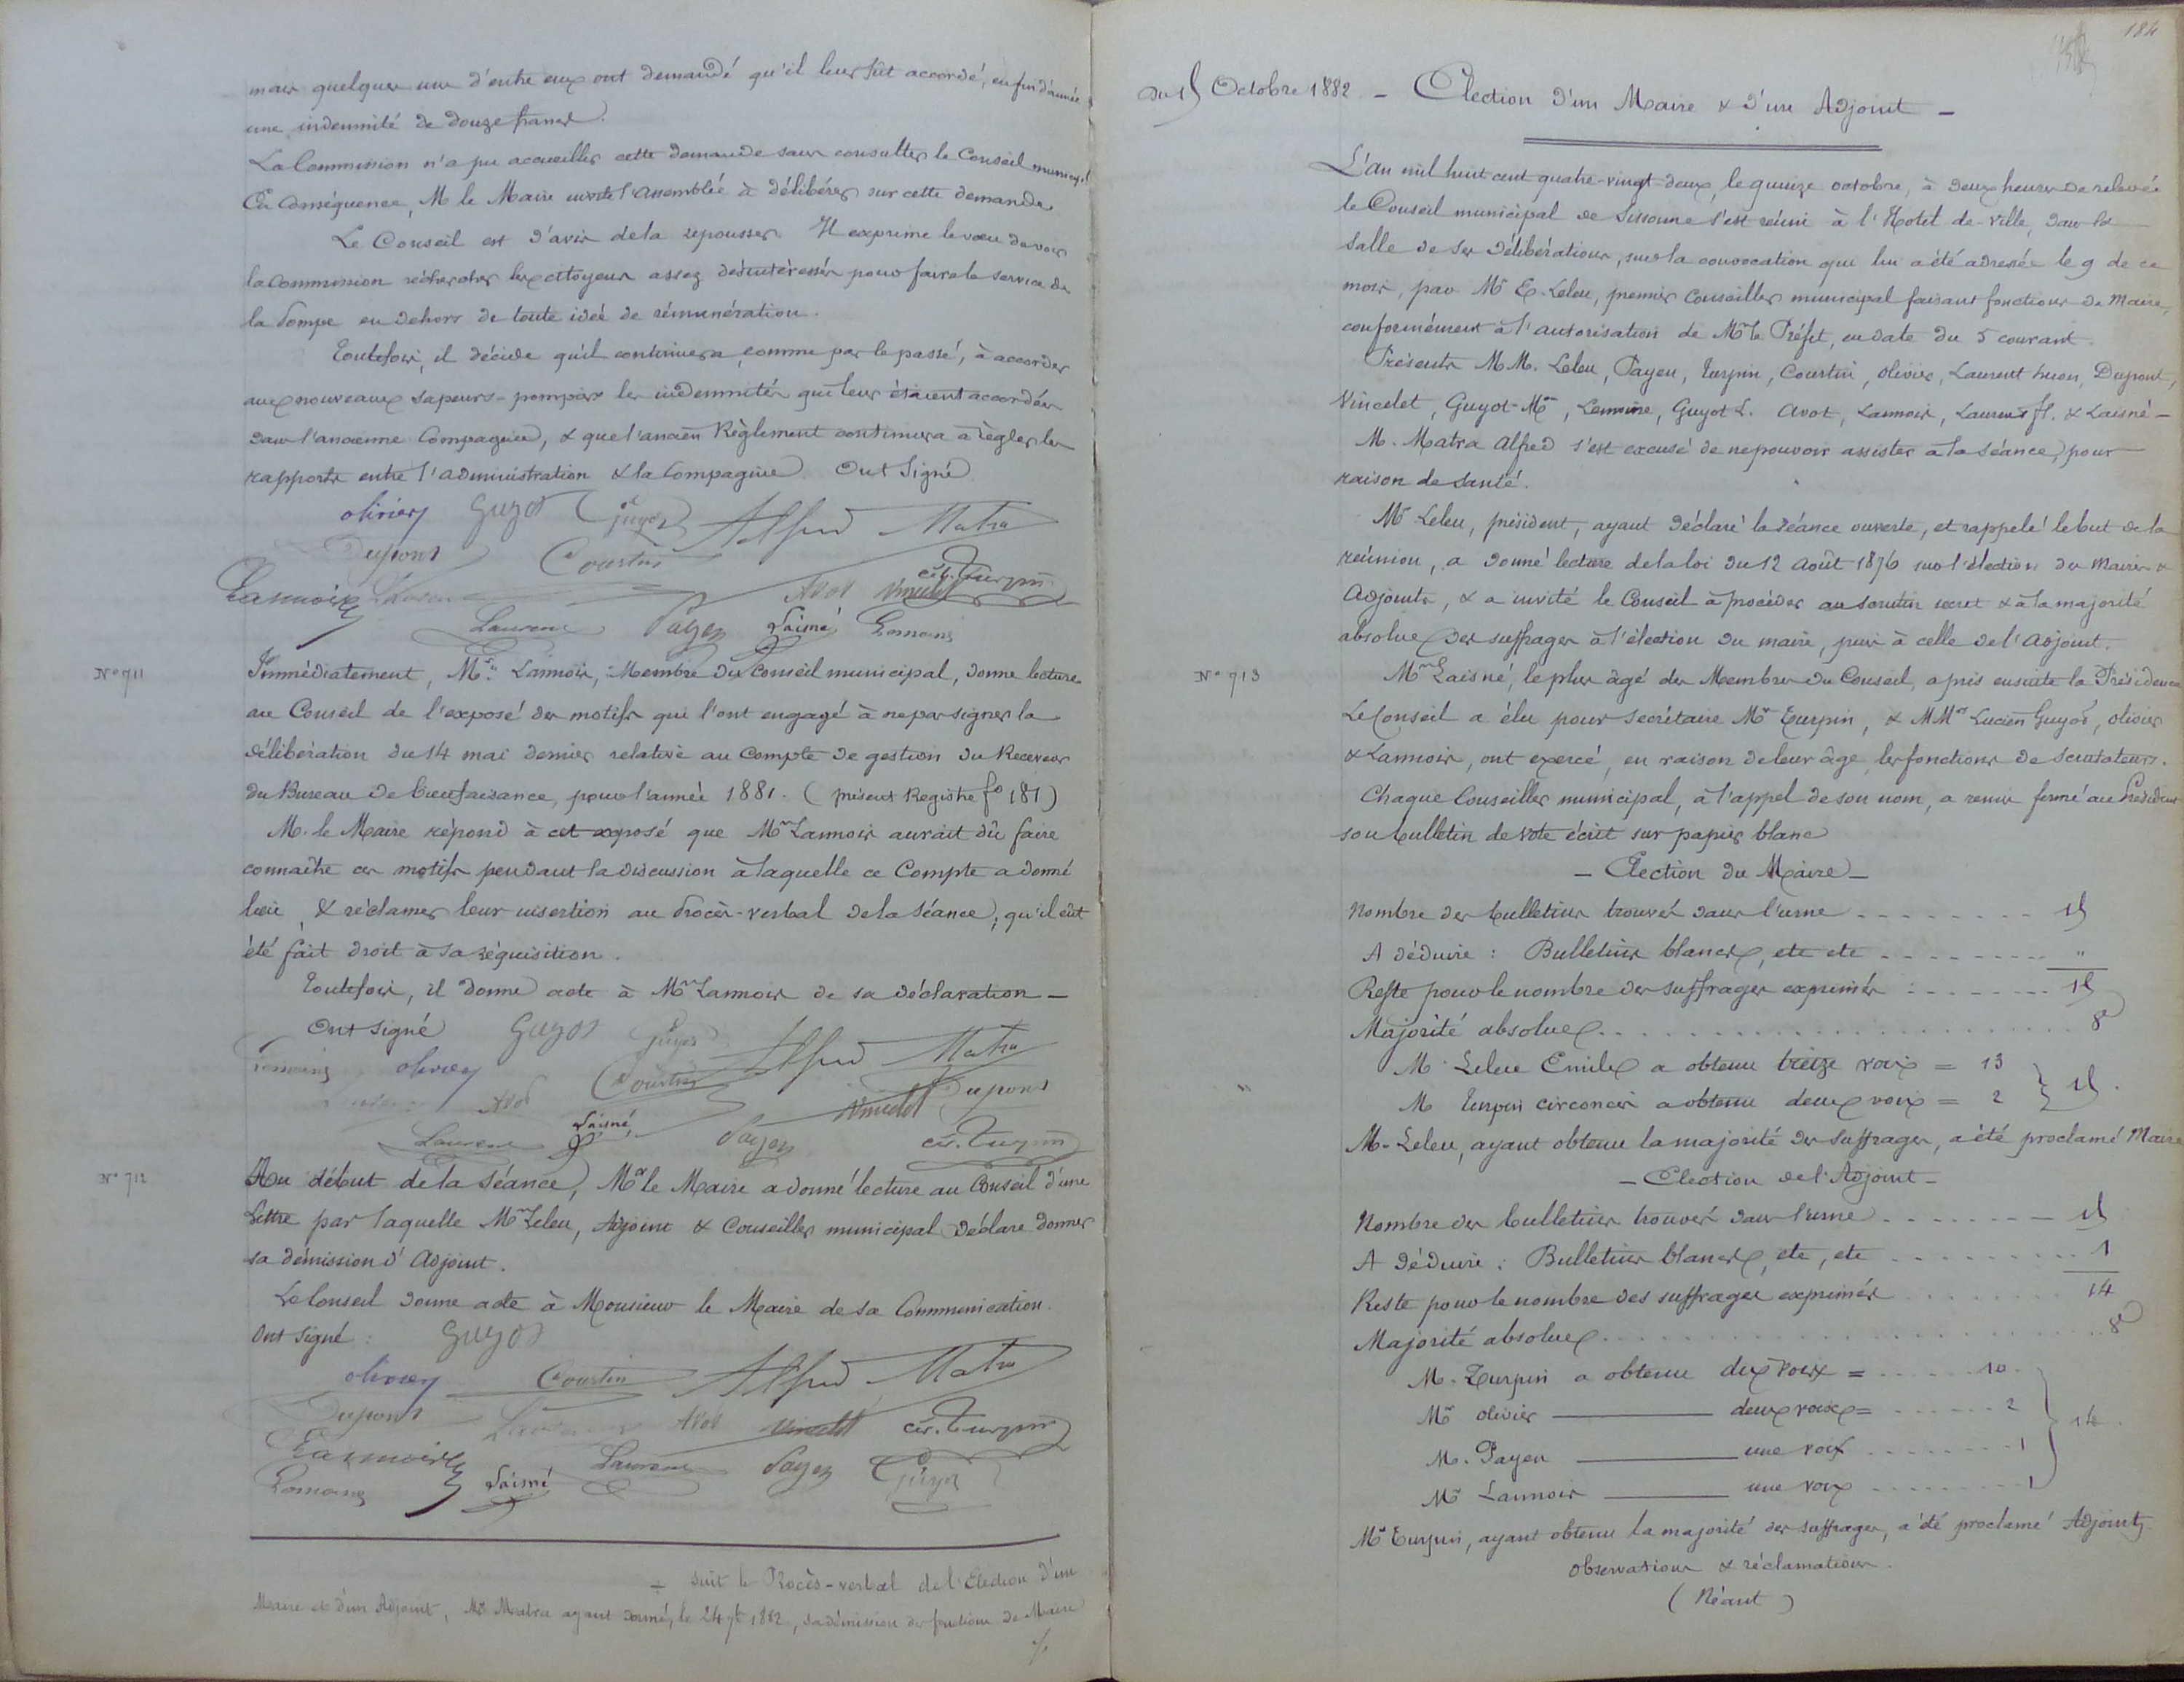 mais quelques uns d'entre eux ont demandé qu'il leur fût accordé, en fin d'année
une indemnité de douze francs.
La Commission n'a pu accueillir cette demande sans consulter le Conseil municipal
En conséquence, M le Maire invite l'assemblée à délibérer sur cette demande
Le Conseil est d'avis de la repousser. Il exprime le vœu de voir
la Commission rechercher les citoyens assez désintéressés pour faire le service de
la Pompe en dehors de toute idée de rémunération.
Toutefois, il décide qu'il continuera, comme par le passé, à accorder
aux nouveaux sapeurs-pompiers les indemnités qui leur étaient accordées
dans l'ancienne Compagnie, & que l'ancien Règlement continuera à régler les
rapports entre l'administration & la Compagnie. Ont Signé
olivier Guyot Guyot Alfred Matra
Dupont Courtin
Lannois Laurent Avot Vincelet cir. Turpin
Laurent Payen Laisné Lemoine
N° 711
Immédiatement, Mr. Lannois, Membre du Conseil municipal, donne lecture
au Conseil de l'exposé des motifs qui l'ont engagé à ne pas signer la
délibération du 14 mai dernier relative au Compte de gestion du Receveur
du Bureau de bienfaisance, pour l'année 1881. (présent Registre fo 181)
M. le Maire répond à cet exposé que Mr Lannois aurait dû faire
connaître ces motifs pendant la discussion à laquelle ce Compte a donné
lieu, & réclamer leur insertion au Procès-verbal de la séance, qu'il eût
été fait droit à sa réquisition.
Toutefois, il donne acte à Mr Lannois de sa déclaration –
Ont signé Guyot Guyot
Lemoine olivier Courtin Alfred Matra
Avot Vincelet Dupont
Laurent Laisné Payen cir. Turpin
N° 712
Au début de la séance, Mr le Maire a donné lecture au Conseil d'une
Lettre par laquelle Mr Leleu, Adjoint & Conseiller municipal déclare donner
sa démission d'Adjoint.
Le Conseil donne acte à Monsieur le Maire de sa Communication.
Ont signé : Guyot
olivier Courtin Alfred Matra
Dupont Laurent Avot Vincelet cir. Turpin
Lannois Laurent Payen Guyot
Lemoine Laisné
÷ suit le Procès-verbal de l'Election d'un
Maire et d'un Adjoint, Mr Matra ayant donné, le 24 7bre 1882, sa démission des fonctions de Maire
./.
184
Du 15 Octobre 1882. – Election d'un Maire & d'un Adjoint –
L'an mil huit cent quatre-vingt-deux, le quinze octobre, à deux heures de relevée
le Conseil municipal de Sissonne s'est réuni à l'Hotel-de-Ville, dans la
salle de ses délibérations, sur la convocation qui lui a été adressée le 9 de ce
mois, par Mr E. Leleu, premier Conseiller municipal faisant fonctions de Maire,
conformément à l'autorisation de Mr le Préfet, en date du 5 courant.
Présents MM. Leleu, Payen, Turpin, Courtin, Olivier, Laurent huon, Dupont,
Vincelet, Guyot-Mon, Lemoine, Guyot L. Avot, Lannois, Laurent fl. & Laisné –
M. Matra Alfred s'est excusé de ne pouvoir assister à la séance, pour
raison de santé.
Mr Leleu, président, ayant déclaré la séance ouverte, et rappelé le but de la
réunion, a donné lecture de la loi du 12 Août 1876 sur l'élection des Maires &
Adjoints, & a invité le Conseil à procéder au scrutin secret & à la majorité
absolue des suffrages à l'élection du maire, puis à celle de l'Adjoint.
N° 713
Mr Laisné, le plus âgé des Membres du Conseil, a pris ensuite la Présidence
Le Conseil a élu pour secrétaire Mr Turpin, & MMrs Lucien Guyot, olivier
& Lannois, ont exercé, en raison de leur âge, les fonctions de scrutateurs.
Chaque Conseiller municipal, à l'appel de son nom, a remis fermé au Président
son bulletin de vote écrit sur papier blanc
– Election du Maire –
Nombre des bulletins trouvés dans l'urne - - - - - - - - 15
A déduire : Bulletins blancs, etc etc - - - - - - - - "
Reste pour le nombre des suffrages exprimés : - - - - - - - 15
Majorité absolue . . . . . . . . . . . . . . . . . . . . 8
M. Leleu Emile a obtenu treize voix = 13
M Turpin circoncis a obtenu deux voix = 2 } 15.
M. Leleu, ayant obtenu la majorité des suffrages, a été proclamé Maire
– Election de l'Adjoint –
Nombre des bulletins trouvés dans l'urne - - - - - - - 15
A déduire : Bulletins blancs, etc, etc - - - - - - - - - 1
Reste pour le nombre des suffrages exprimés . . . . . . . 14
Majorité absolue . . . . . . . . . . . . . . . . . . . . 8
M. Turpin a obtenu dix voix = - - - - - 10.
Mr Olivier ——— deux voix = - - - - - - 2
M. Payen ——— une voix - - - - - - - - 1 } 14.
Mr Lannois ——— une voix - - - - - - - - 1
Mr Turpin, ayant obtenu la majorité des suffrages, a été proclamé Adjoint.
Observations & réclamations.
(Néant)